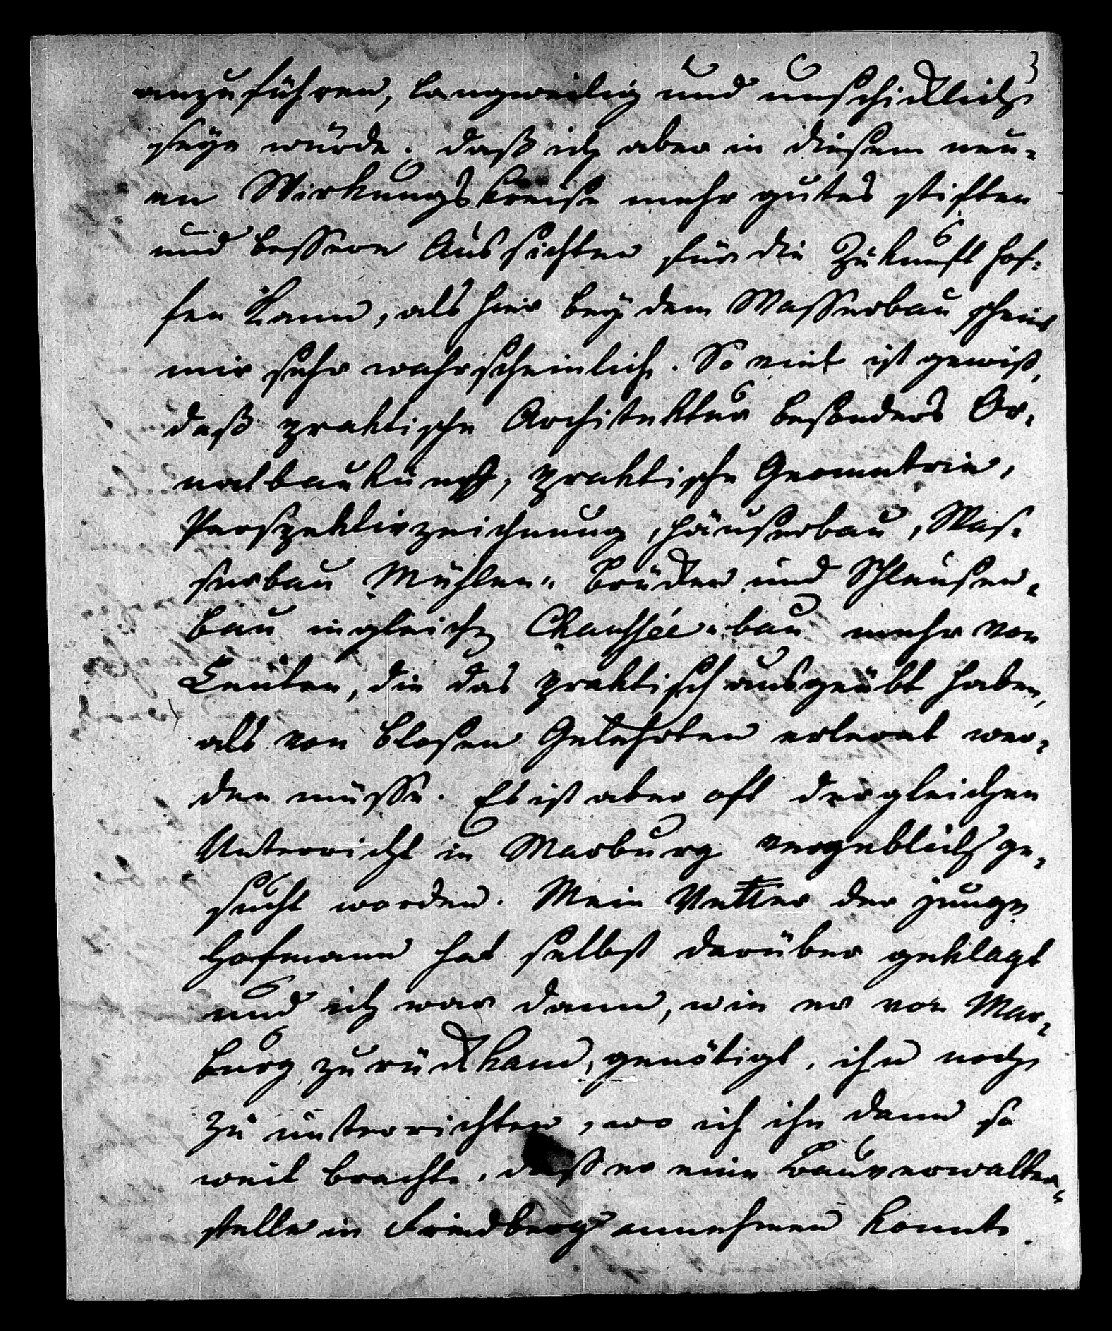 3
anzuführen, langweilig und unschicklich
seyn würde. Daß ich aber in diesem neu-
en Wirkungskreise mehr gutes stiften
und bessere Aussichten für die Zukunft hof-
fen kann, als hier bey dem Wasserbau scheint
mir sehr wahrscheinlich. So viel ist gewiß,
daß praktische Architektur besonders
baukunst, praktische Geometrie,
Perspektivzeichnung, Häuserbau, Was-
serbau Mühlen- Brücken und Schleusen-
bau ingleich Chaussée-bau mehr von
Leuten, die das praktisch ausgeübt haben,
als von blosen Gelehrten erlernt wer-
den müsse. Es ist aber oft dergleichen
Unterricht in Marburg vergeblich ge-
sucht worden. Mein Vetter der junge
Hofmann hat selbst darüber geklagt
und ich war dann, wie er von Mar-
burg zurückkam, genötigt, ihn noch
zu unterrichten, wo ich ihn dann so
weit brachte, daß er eine Bauverwalter-
stelle in Friedberg annehmen konnte.